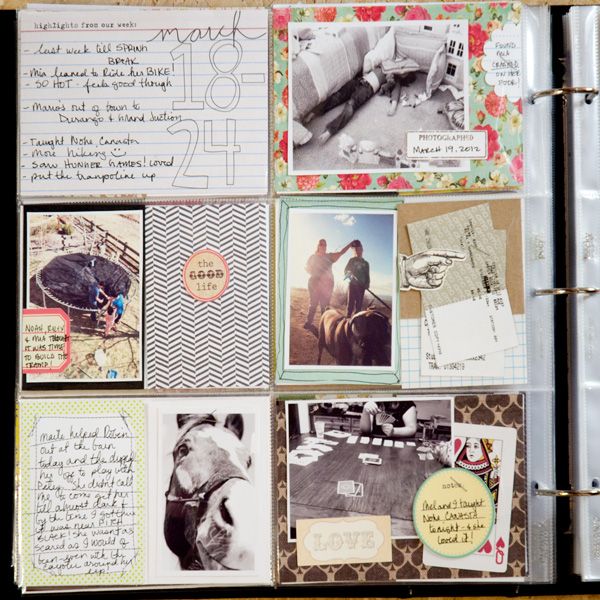 highlights from our week:
march
18-
24
- last week till SPRING
BREAK
- Mia learned to Ride her BIKE!
- SO HOT - feels good though
- Marco's out of town to
Durango & Grand Junction
- Taught Nohe Canasta
- More hiking
- SAW HUNGER GAMES! Loved
- put the trampoline up
FOUND
MIA
CRASHED
ON HER
FLOOR!
PHOTOGRAPHED
MARCH 19, 2012
the
GOOD
life
NOAH, RILEY
& MIA THOUGHT
IT WAS TIME
TO BUILD THE
TRAMP!
Maite helped Robin
out at the barn
today and she
her to play with
She didn't call
me to come get her
till almost dark &
by the time I got there
it was near PITCH
BLACK! She wasn't as
scared as I would of
been - even with the
coyotes around her
notes
Mel and I taught
Nohe CANASTA
tonight - & she
loved it!
LOVE